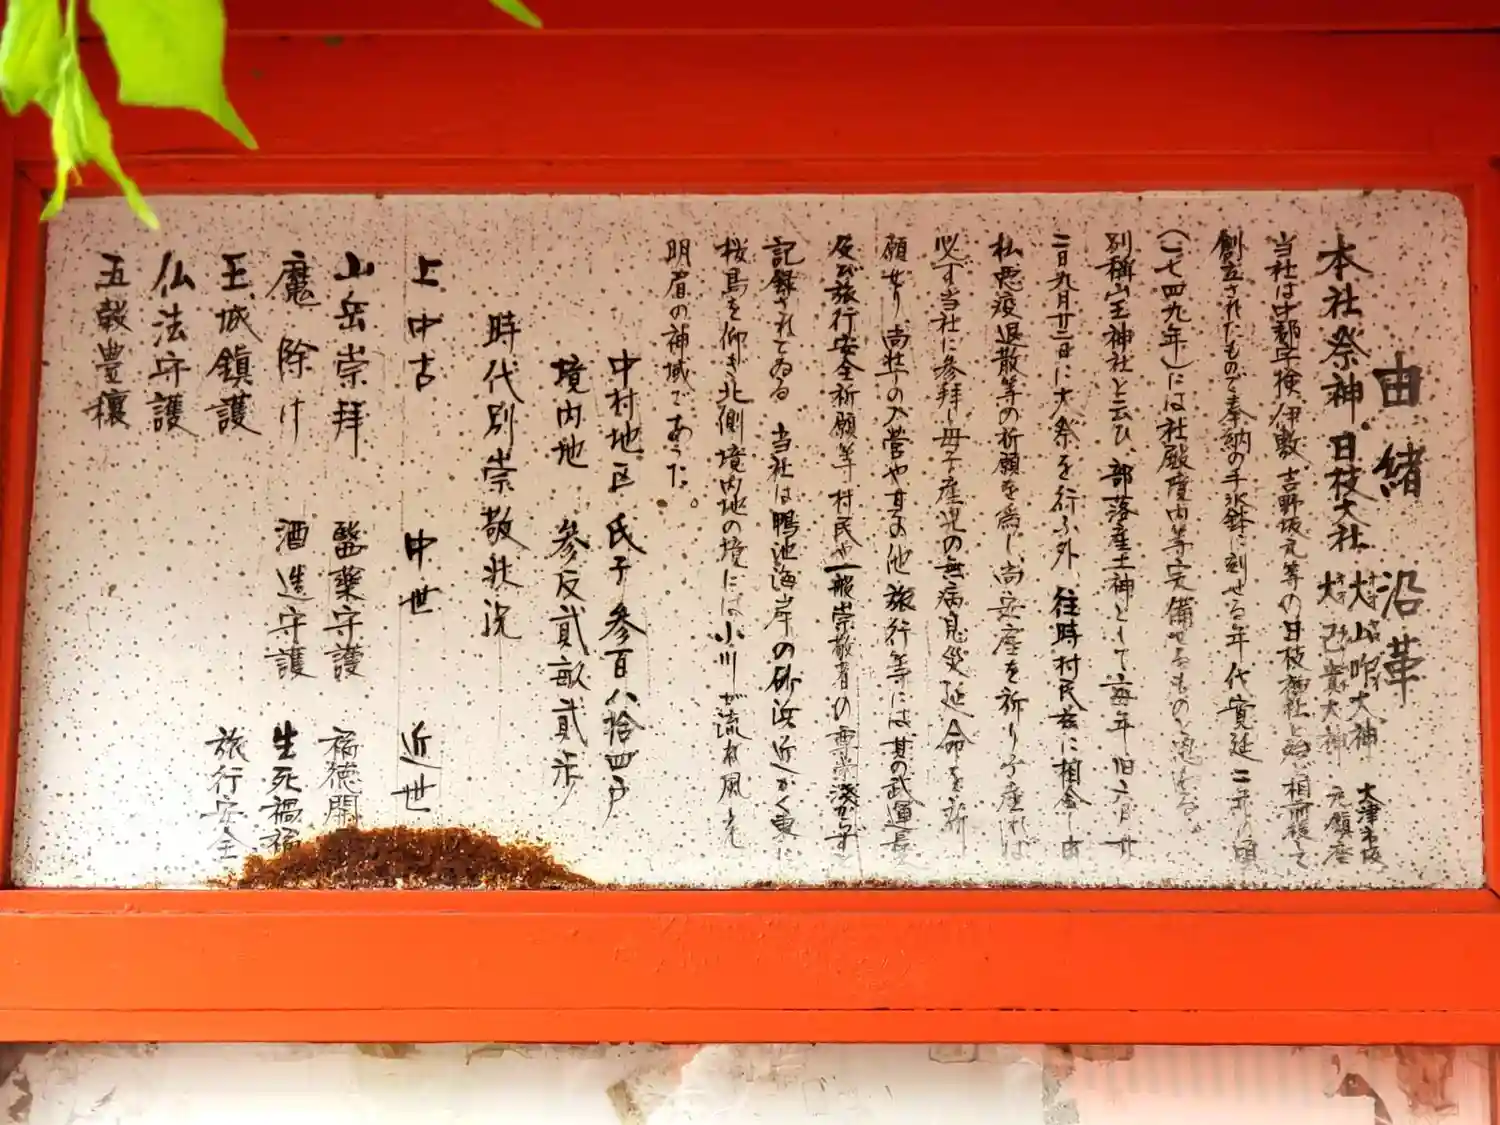 由緒沿革
本社祭神 日枝大社 大山咋大神 大津市坂
大己貴大神 元鎮座
当社は中郡宇検、伊敷、吉野坂元等の日枝神社と相前後して
創立されたもので奉納の手水鉢に刻せる年代寛延二年の頃
(一七四九年)には社殿境内等完備せるもの
別称山王神社と云ひ、部落産土神として毎年旧六月廿
二日九月廿二日に大祭を行ふ外、往時村民茲に相会し虫
払悪疫退散等の祈願を為し、尚安産を祈り子産れば
必ず当社に参拝し母子産児の無病息災延命を祈
願せり 尚壮丁の入営や其の他旅行等には其の武運長久
及び旅行安全祈願等村民や一般崇敬者の尊崇浅からずと
記録されてゐる 当社は鴨池海岸の砂浜近かく東に
桜島を仰ぎ北側境内地の境には小川が流れ風光
明眉の神域であった。
中村地区 氏子 参百八拾四戸
境内地 参反貳畝貳歩
時代別崇敬状況
上中古 中世 近世
山岳崇拝 醫薬守護 福徳開
魔除け 酒造守護 生死禍福
王城鎮護 旅行安全
仏法守護
五穀豊穣